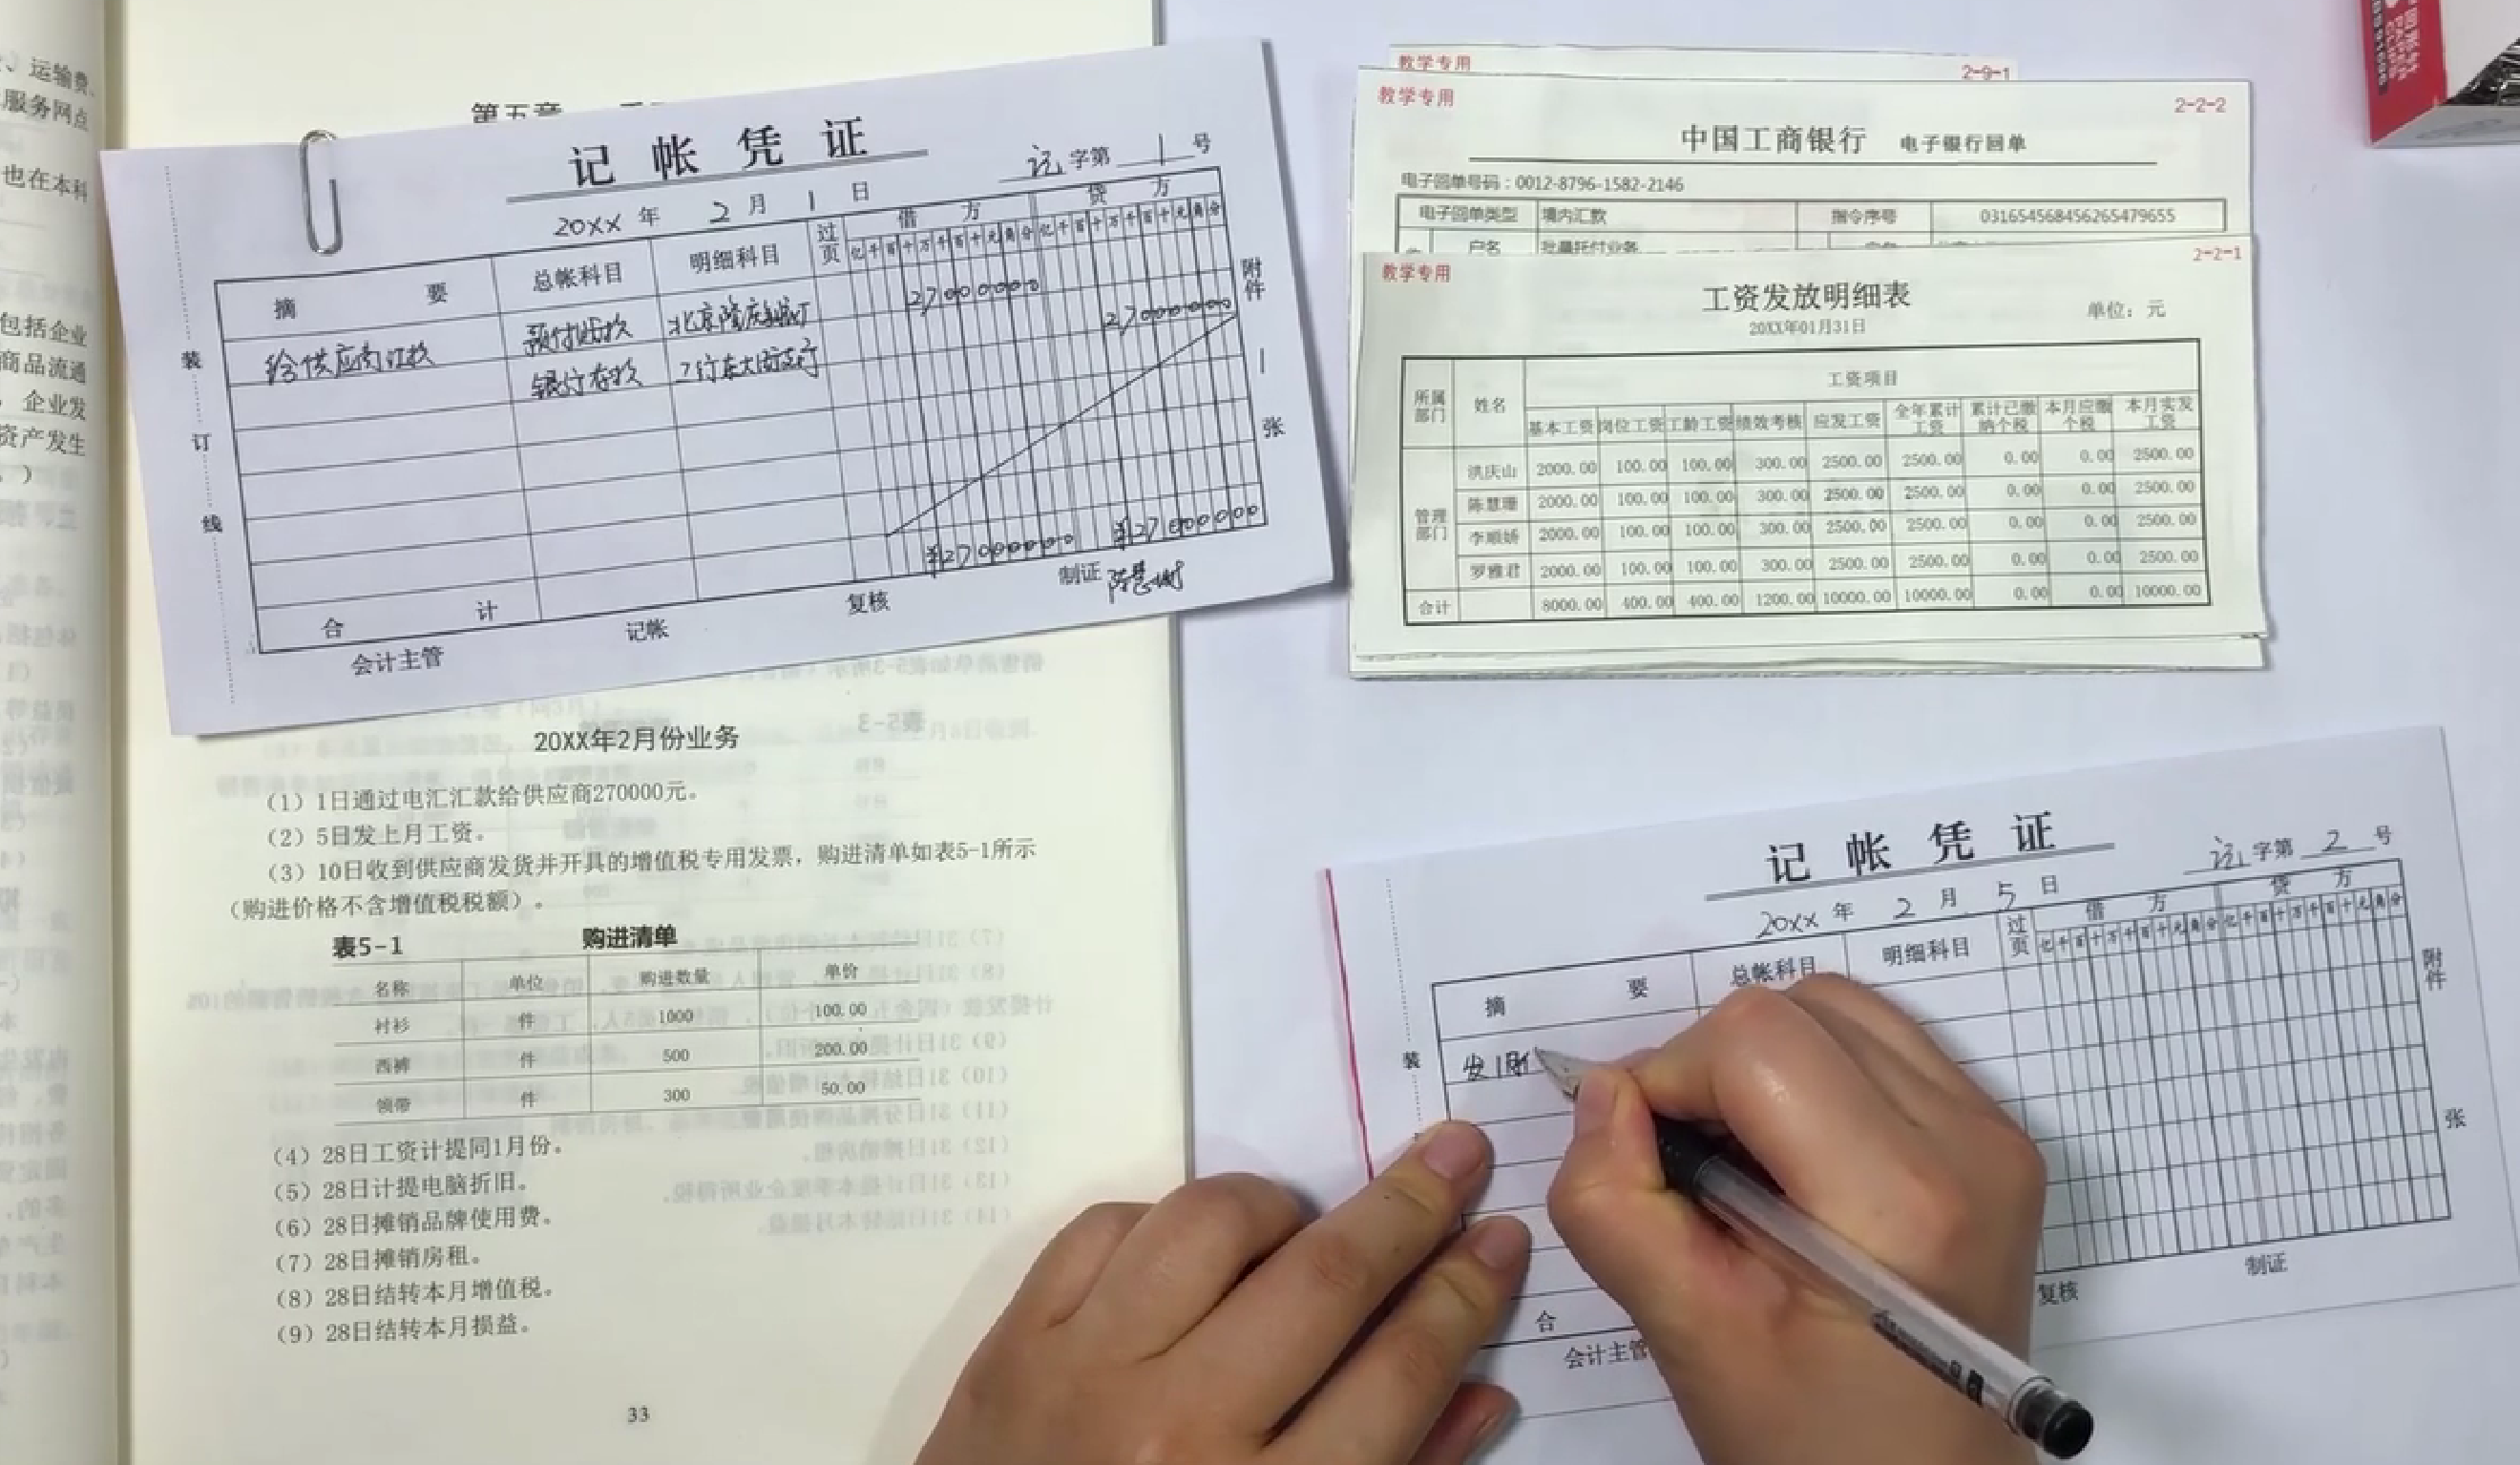 、运输费、
服务网点
也在本科
包括企业
商品流通
，企业发
资产发生
。）
第五章
记帐凭证
记字第 1 号
20XX 年 2 月 1 日
摘要 总帐科目 明细科目 过页 借方 贷方
亿千百十万千百十元角分 亿千百十万千百十元角分
给供应商汇款 预付账款 27000000
银行存款 工行东大街支行 27000000
合计 ¥27000000 ¥27000000
会计主管 记帐 复核 制证
附件 1 张
装订线
20XX年2月份业务
（1）1日通过电汇汇款给供应商270000元。
（2）5日发上月工资。
（3）10日收到供应商发货并开具的增值税专用发票，购进清单如表5-1所示
（购进价格不含增值税税额）。
表5-1 购进清单
名称 单位 购进数量 单价
衬衫 件 1000 100.00
西裤 件 500 200.00
领带 件 300 50.00
（4）28日工资计提同1月份。
（5）28日计提电脑折旧。
（6）28日摊销品牌使用费。
（7）28日摊销房租。
（8）28日结转本月增值税。
（9）28日结转本月损益。
33
教学专用 2-9-1
教学专用 2-2-2
中国工商银行 电子银行回单
电子回单号码：0012-8796-1582-2146
电子回单类型 境内汇款 指令序号 031654568456265479655
户名 批量托付业务
教学专用 2-2-1
工资发放明细表
20XX年01月31日 单位：元
所属部门 姓名 工资项目
基本工资 岗位工资 工龄工资 绩效考核 应发工资 全年累计工资 累计已缴纳个税 本月应缴个税 本月实发工资
管理部门
洪庆山 2000.00 100.00 100.00 300.00 2500.00 2500.00 0.00 0.00 2500.00
陈慧珊 2000.00 100.00 100.00 300.00 2500.00 2500.00 0.00 0.00 2500.00
李顺娇 2000.00 100.00 100.00 300.00 2500.00 2500.00 0.00 0.00 2500.00
罗雅君 2000.00 100.00 100.00 300.00 2500.00 2500.00 0.00 0.00 2500.00
合计 8000.00 400.00 400.00 1200.00 10000.00 10000.00 0.00 0.00 10000.00
记帐凭证
记字第 2 号
20XX 年 2 月 5 日
摘要 总帐科目 明细科目 过页 借方 贷方
亿千百十万千百十元角分 亿千百十万千百十元角分
发1月
合
会计主管 复核 制证
附件 张
装